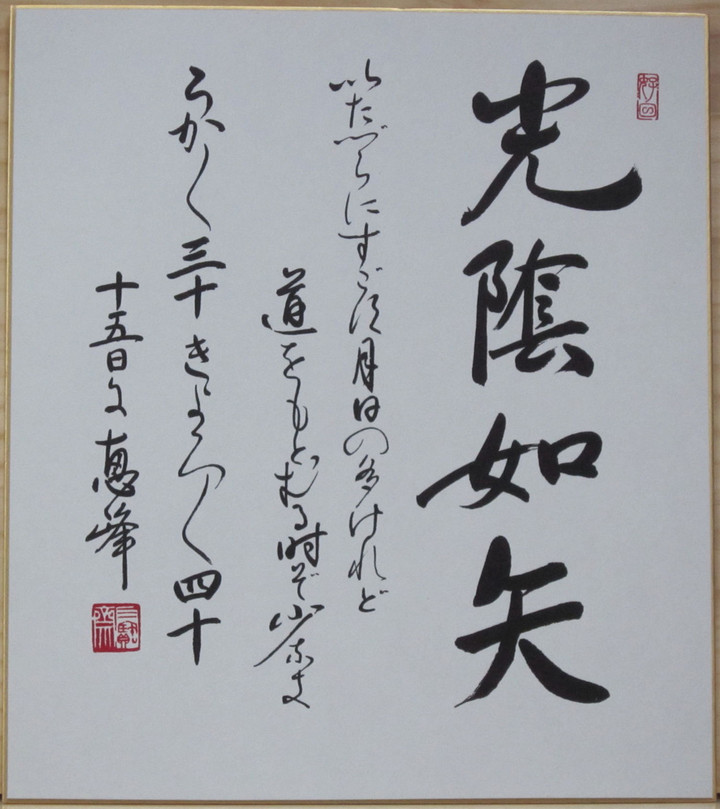 光陰如矢
いたづらにすごす月日の多けれど
道をもとむる時ぞ少なき
うか〱三十きよろ〱四十
十五日に 恵峰